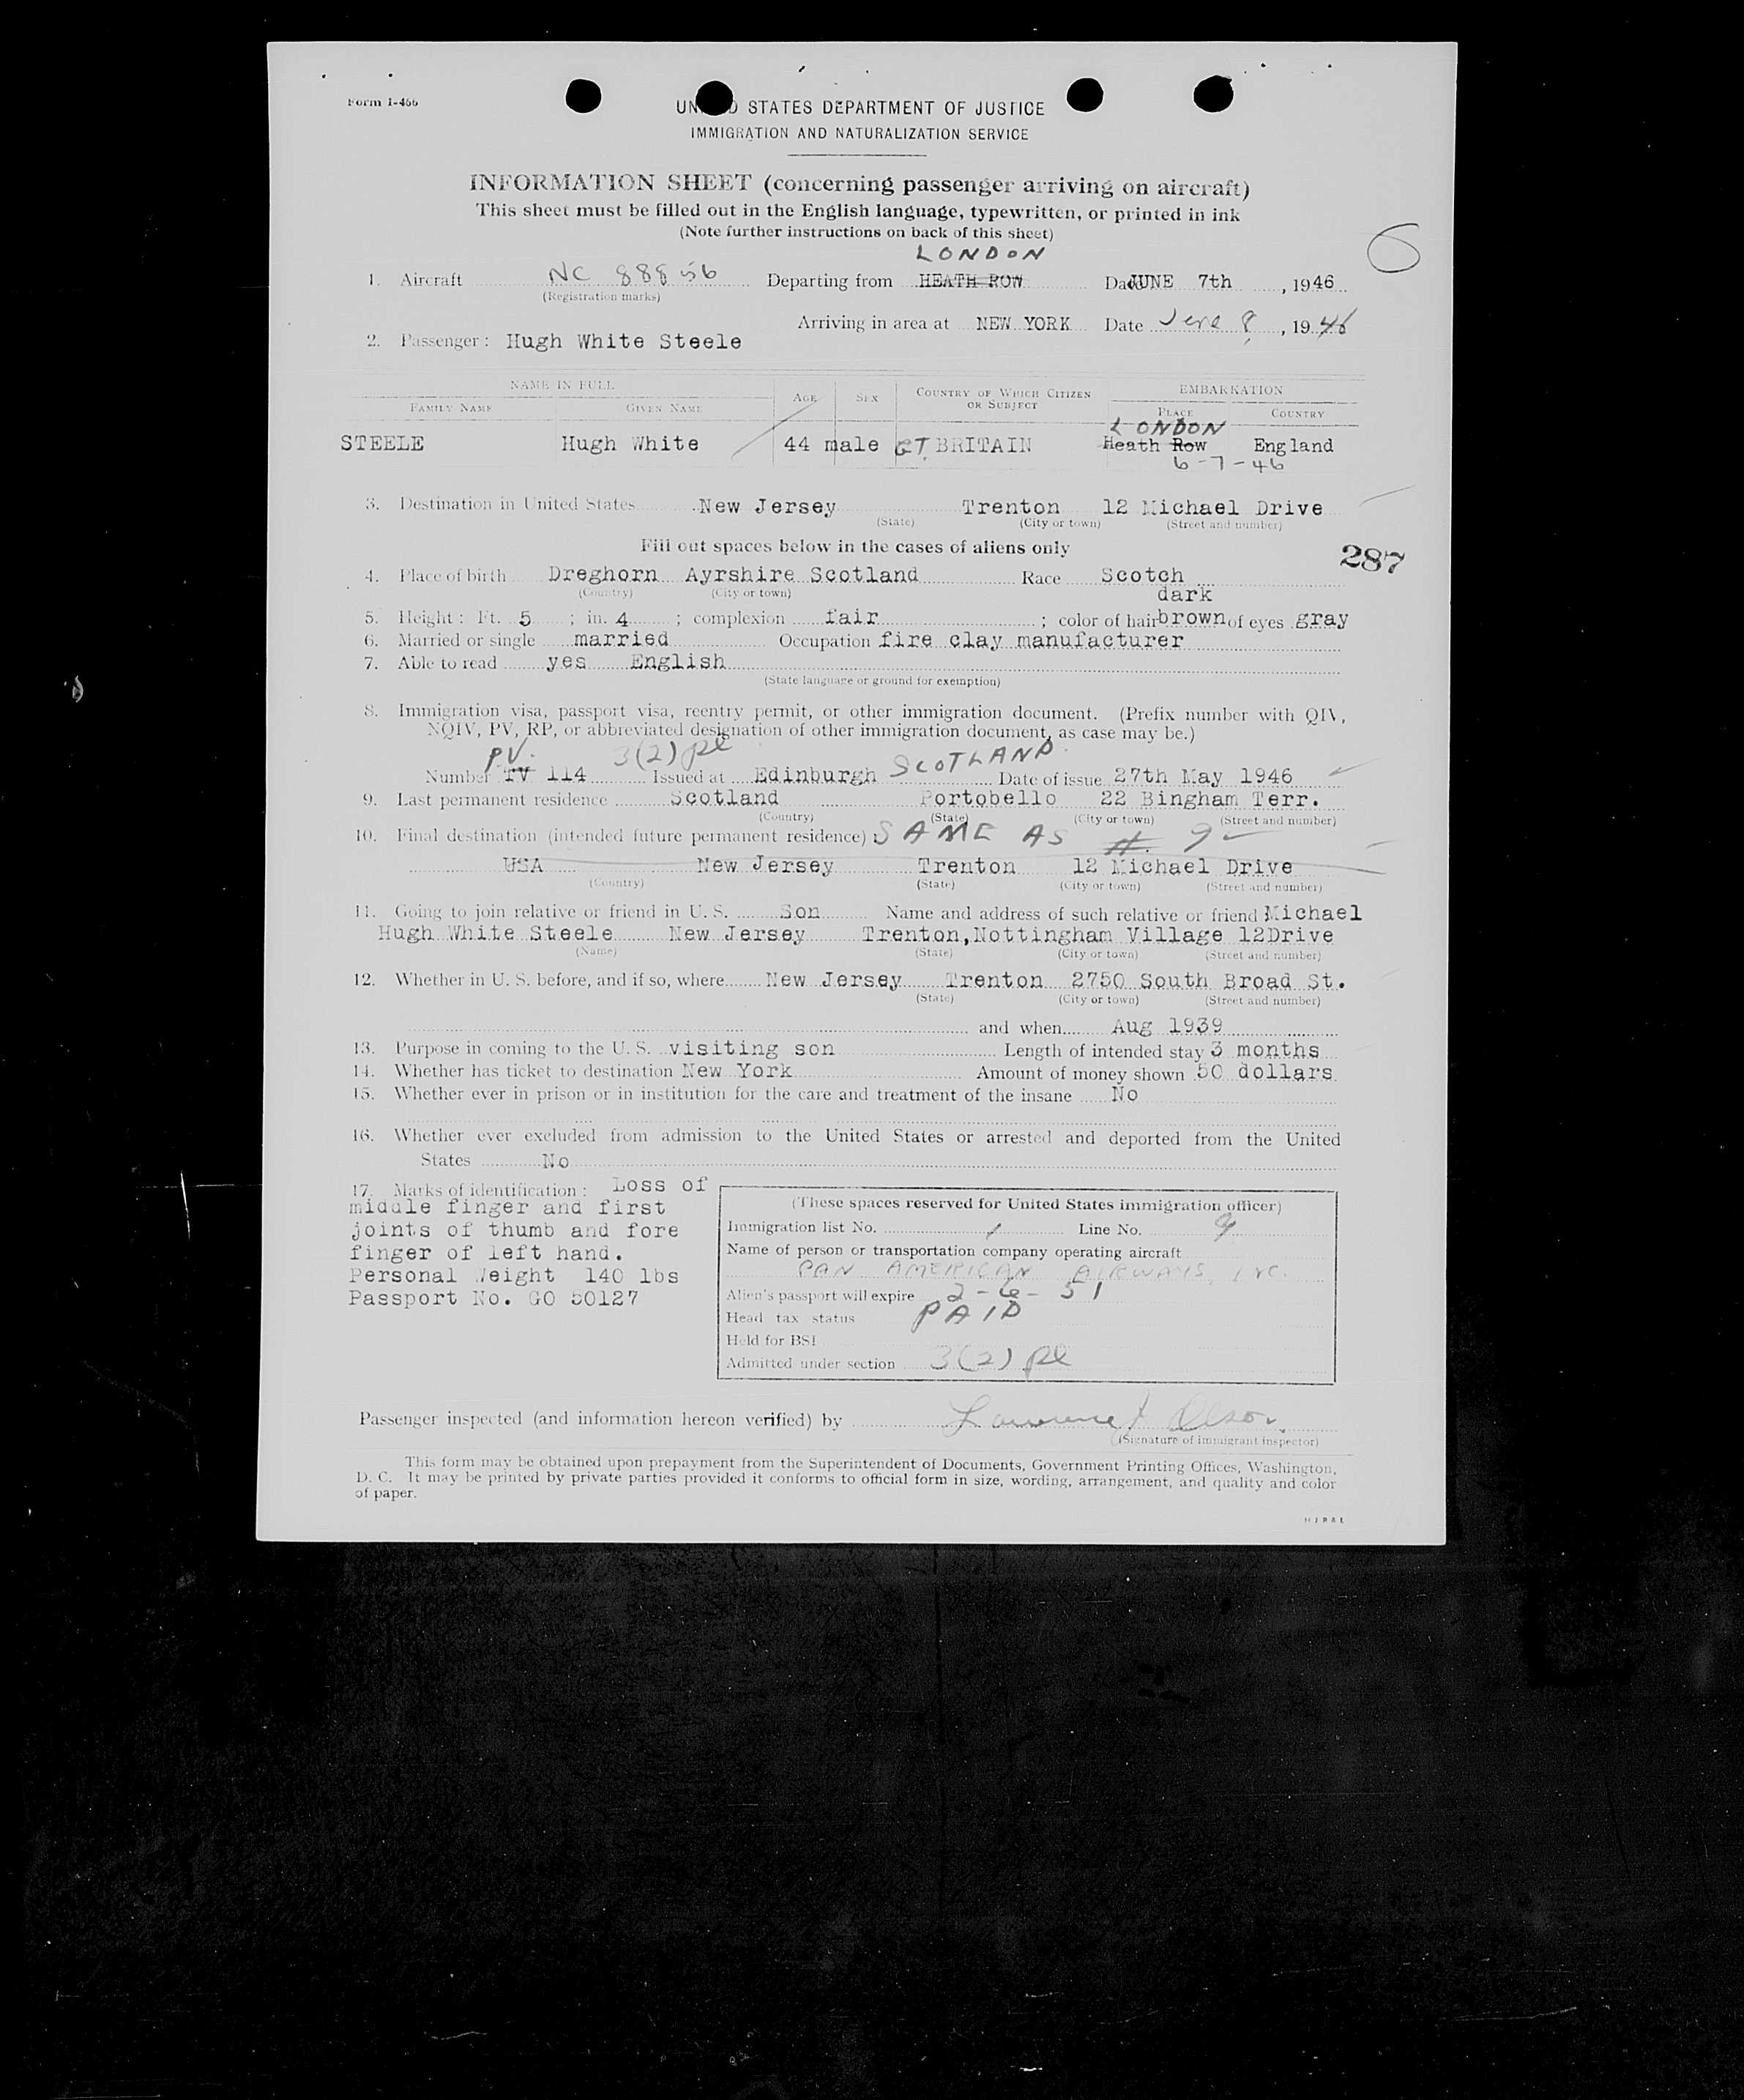 Form I-466
UN D STATES DEPARTMENT OF JUSTICE
IMMIGRATION AND NATURALIZATION SERVICE
INFORMATION SHEET (concerning passenger arriving on aircraft)
This sheet must be filled out in the English language, typewritten, or printed in ink
(Note further instructions on back of this sheet)
LONDON
1. Aircraft NC 88856 Departing from HEATH ROW Date JUNE 7th, 1946
(Registration marks)
Arriving in area at NEW YORK Date June 8, 1946
2. Passenger: Hugh White Steele
NAME IN FULL AGE SEX COUNTRY OF WHICH CITIZEN OR SUBJECT EMBARKATION
FAMILY NAME GIVEN NAME PLACE COUNTRY
LONDON
STEELE Hugh White 44 male GT. BRITAIN Heath Row England
6-7-46
3. Destination in United States New Jersey Trenton 12 Michael Drive
(State) (City or town) (Street and number)
Fill out spaces below in the cases of aliens only
287
4. Place of birth Dreghorn Ayrshire Scotland Race Scotch
(Country) (City or town)
dark
5. Height: Ft. 5; in. 4; complexion fair; color of hair brown of eyes gray
6. Married or single married Occupation fire clay manufacturer
7. Able to read yes English
(State language or ground for exemption)
8. Immigration visa, passport visa, reentry permit, or other immigration document. (Prefix number with QIV,
NQIV, PV, RP, or abbreviated designation of other immigration document, as case may be.)
PV. 3(2) pl SCOTLAND
Number TV 114 Issued at Edinburgh Date of issue 27th May 1946
9. Last permanent residence Scotland Portobello 22 Bingham Terr.
(Country) (State) (City or town) (Street and number)
10. Final destination (intended future permanent residence): SAME AS #. 9
USA New Jersey Trenton 12 Michael Drive
(Country) (State) (City or town) (Street and number)
11. Going to join relative or friend in U. S. Son Name and address of such relative or friend Michael
Hugh White Steele New Jersey Trenton, Nottingham Village 12Drive
(Name) (State) (City or town) (Street and number)
12. Whether in U. S. before, and if so, where New Jersey Trenton 2750 South Broad St.
(State) (City or town) (Street and number)
and when Aug 1939
13. Purpose in coming to the U. S. visiting son Length of intended stay 3 months
14. Whether has ticket to destination New York Amount of money shown 50 dollars
15. Whether ever in prison or in institution for the care and treatment of the insane No
16. Whether ever excluded from admission to the United States or arrested and deported from the United
States No
17. Marks of identification: Loss of
middle finger and first
joints of thumb and fore
finger of left hand.
Personal Weight 140 lbs
Passport No. GO 50127
(These spaces reserved for United States immigration officer)
Immigration list No. 1 Line No. 9
Name of person or transportation company operating aircraft
PAN AMERICAN AIRWAYS, INC.
Alien's passport will expire 2-6-51
Head tax status PAID
Held for BSI
Admitted under section 3(2) pl
Passenger inspected (and information hereon verified) by Lawrence J Olson
(Signature of immigrant inspector)
This form may be obtained upon prepayment from the Superintendent of Documents, Government Printing Offices, Washington,
D. C. It may be printed by private parties provided it conforms to official form in size, wording, arrangement, and quality and color
of paper.